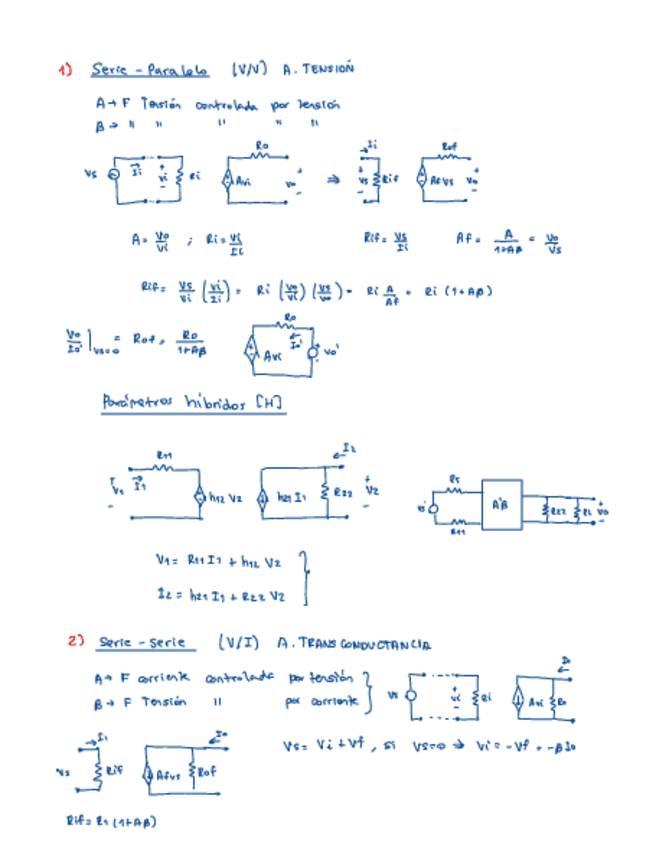 1) Serie - Paralelo (V/V) A. TENSIÓN
A → F Tensión controlada por tensión
B → " " " " "
Vs Ii + vi - Ri Ro Avi + vo - ⇒ Ii + Vs - Rif Rof AfVs + Vo -
A = Vo/Vi ; Ri = Vi/Ii Rif = Vs/Ii Af = A/1+AB = Vo/Vs
Rif = Vs/Vi (Vi/Ii) = Ri (Vo/Vi) (Vs/Vo) = Ri A/Af = Ri (1+AB)
Vo'/Io' |Vs=0 = Rof = Ro/1+AB Ro Avi Io' + Vo' -
Parámetros híbridos [H]
R11 + V1 - I1 h12 V2 h21 I1 R22 I2 + V2 - Rs R11 A'B R22 RL + Vo -
V1 = R11 I1 + h12 V2
I2 = h21 I1 + R22 V2
2) Serie - serie (V/I) A. TRANSCONDUCTANCIA
A → F corriente controlada por tensión
B → F Tensión " por corriente
Vs + vi - Ri Avi Ro Io
Vs = Vi + Vf , si Vs=0 ⇒ Vi = -Vf = -BIo
Vs Ii Rif AfVs Rof Io
Rif = Ri (1+AB)